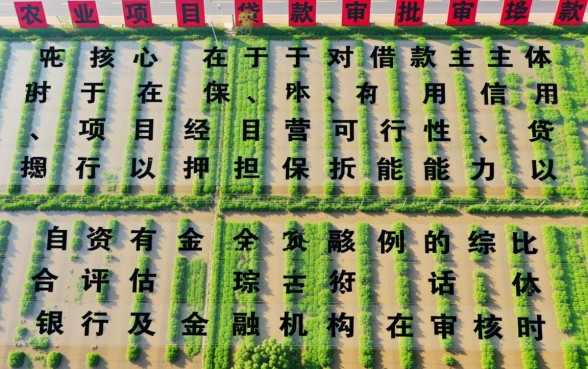 农业项目贷款审批审款
核心在于于对借款主主体
于在保、、有用信用
、项目经目营可行性、贷
行以押担保折能能力以
自资有金融例的综比
合评估话体
银行及金融机构在审核时